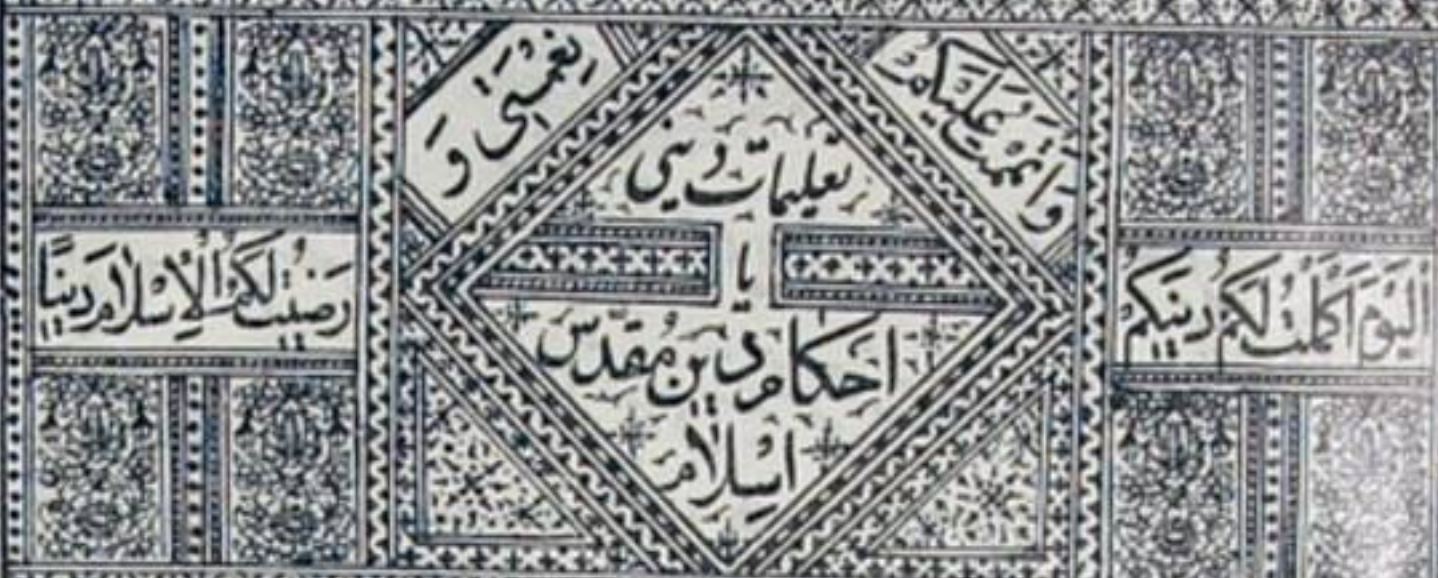 اَلیَومَ اَکمَلتُ لَکُم دینَکُم
وَ اَتمَمتُ عَلَیکُم
نِعمَتی وَ
رَضیتُ لَکُمُ الاِسلامَ دیناً
تعلیمات دینی
یا
احکام دین مُقدّس
اسلام